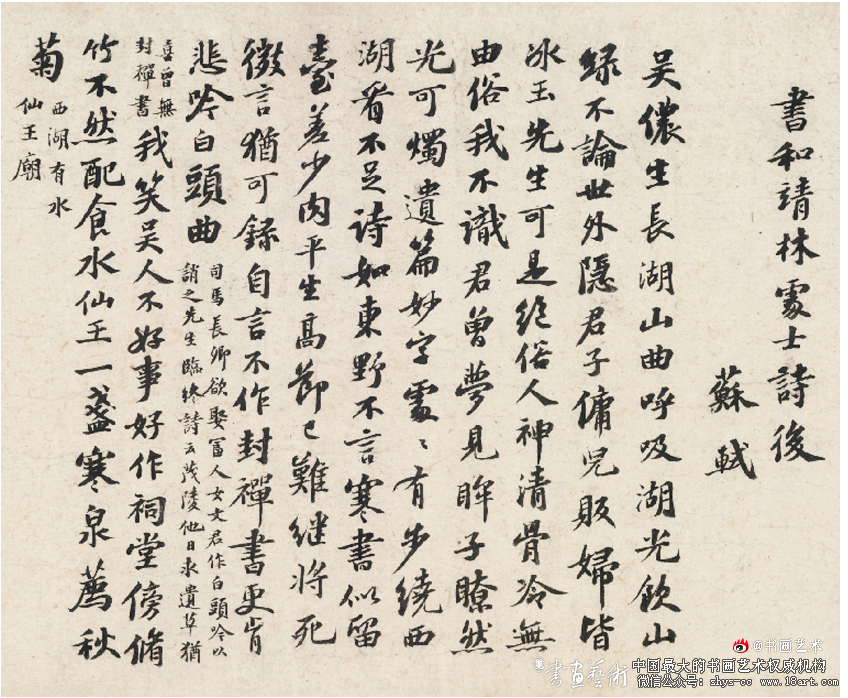 書和靖林處士詩後
蘇軾
吳儂生長湖山曲呼吸湖光飲山
緑不論世外隱君子傭兒販婦皆
冰玉先生可是絕俗人神清骨冷無
由俗我不識君曾夢見眸子瞭然
光可燭遺篇妙字處〻有步繞西
湖看不足詩如東野不言寒書似留
臺差少肉平生高節已難繼將死
微言猶可録自言不作封禪書更肯
悲吟白頭曲
司馬長卿欲娶富人女文君作白頭吟以
誚之先生臨終詩云茂陵他日求遺草猶
喜曾無
封禪書
我笑吳人不好事好作祠堂傍脩
竹不然配食水仙王一盞寒泉薦秋
菊
西湖有水
仙王廟
@书画艺术
書畫藝術
中国最大的书画艺术权威机构
微信公众号：shys-cc www.18art.com